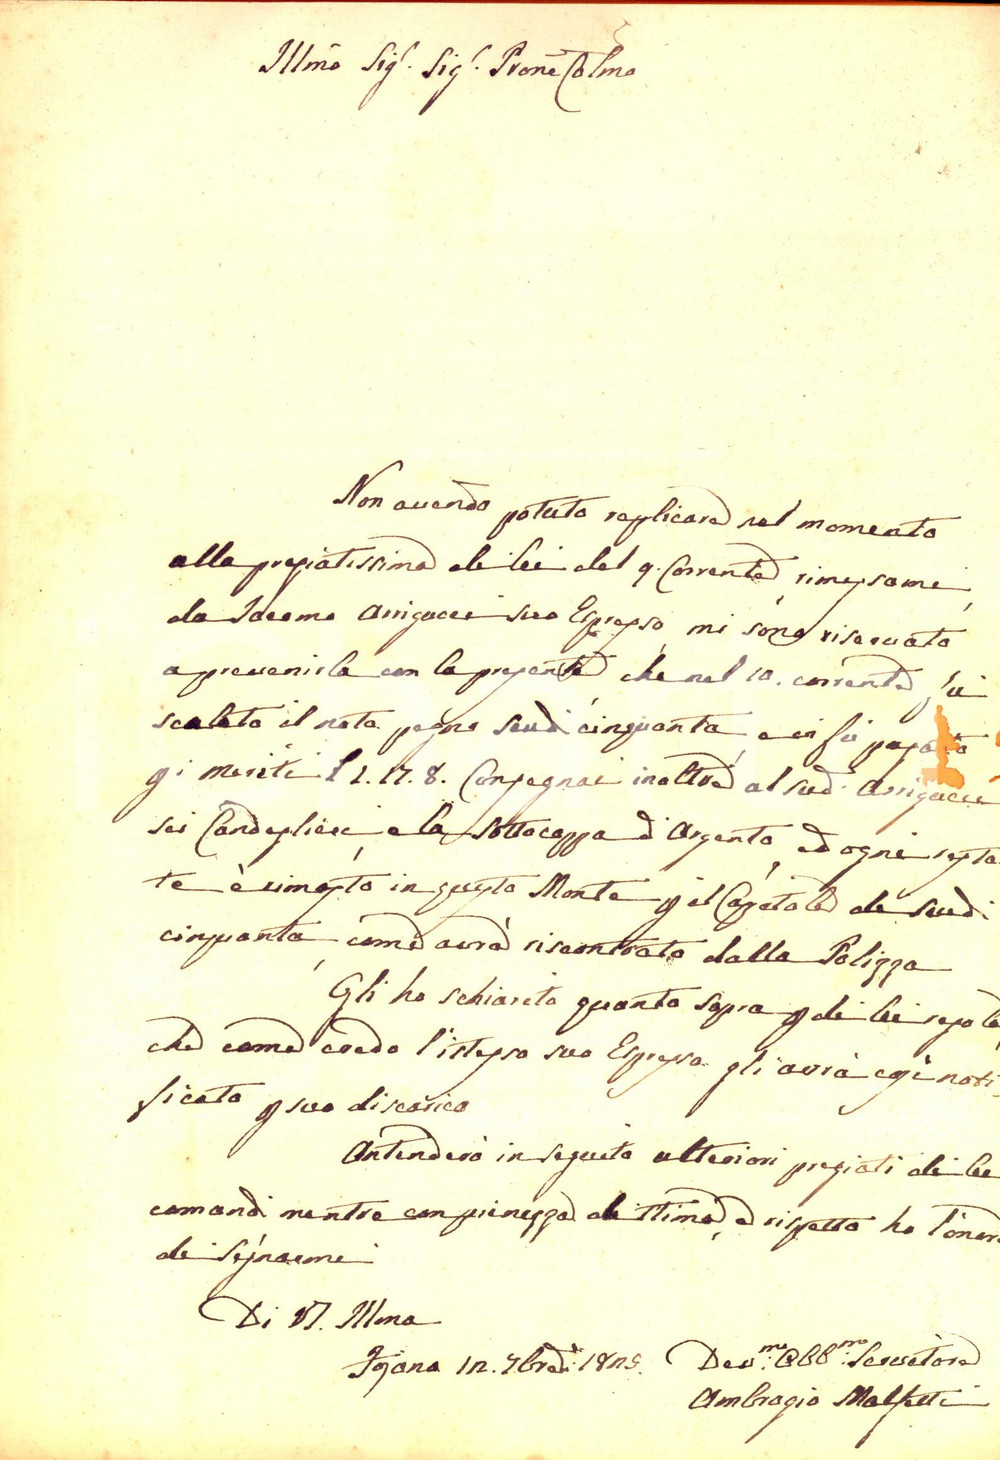 Illmo Sig.r Sig.r Prone Colmo
Non avendo potuto replicare nel momento
alla pregiatissima di lei del 9. Corrente, rimessami
da Iacomo Arrigucci suo Espresso, mi sono riservato
a prevenirla con la presente, che nel 10. corrente fu
scalato il noto pegno scudi cinquanta, e ci fu pagato
p i meriti £ 2.17.8. Consegnai inoltre al sud. Arrigucci
sei Candeglieri, e la sottocoppa d'Argento, ed ogni restan
te è rimasto in questo Monte p il Capitale di scudi
cinquanta, come avrà riscontrato dalla Polizza
Gli ho schiarito quanto sopra p di lei regola,
che come credo l'istesso suo Espresso gli avrà ogi noti
ficato p suo discarico
Attenderò in seguito ulteriori pregiati di lei
comandi mentre con pienezza di stima, e rispetto ho l'onore
di segnarmi
Di VS. Illma
Fojano 12. 7bre 1825. Dev.mo Obb.mo Servitore
Ambrogio Malfetti